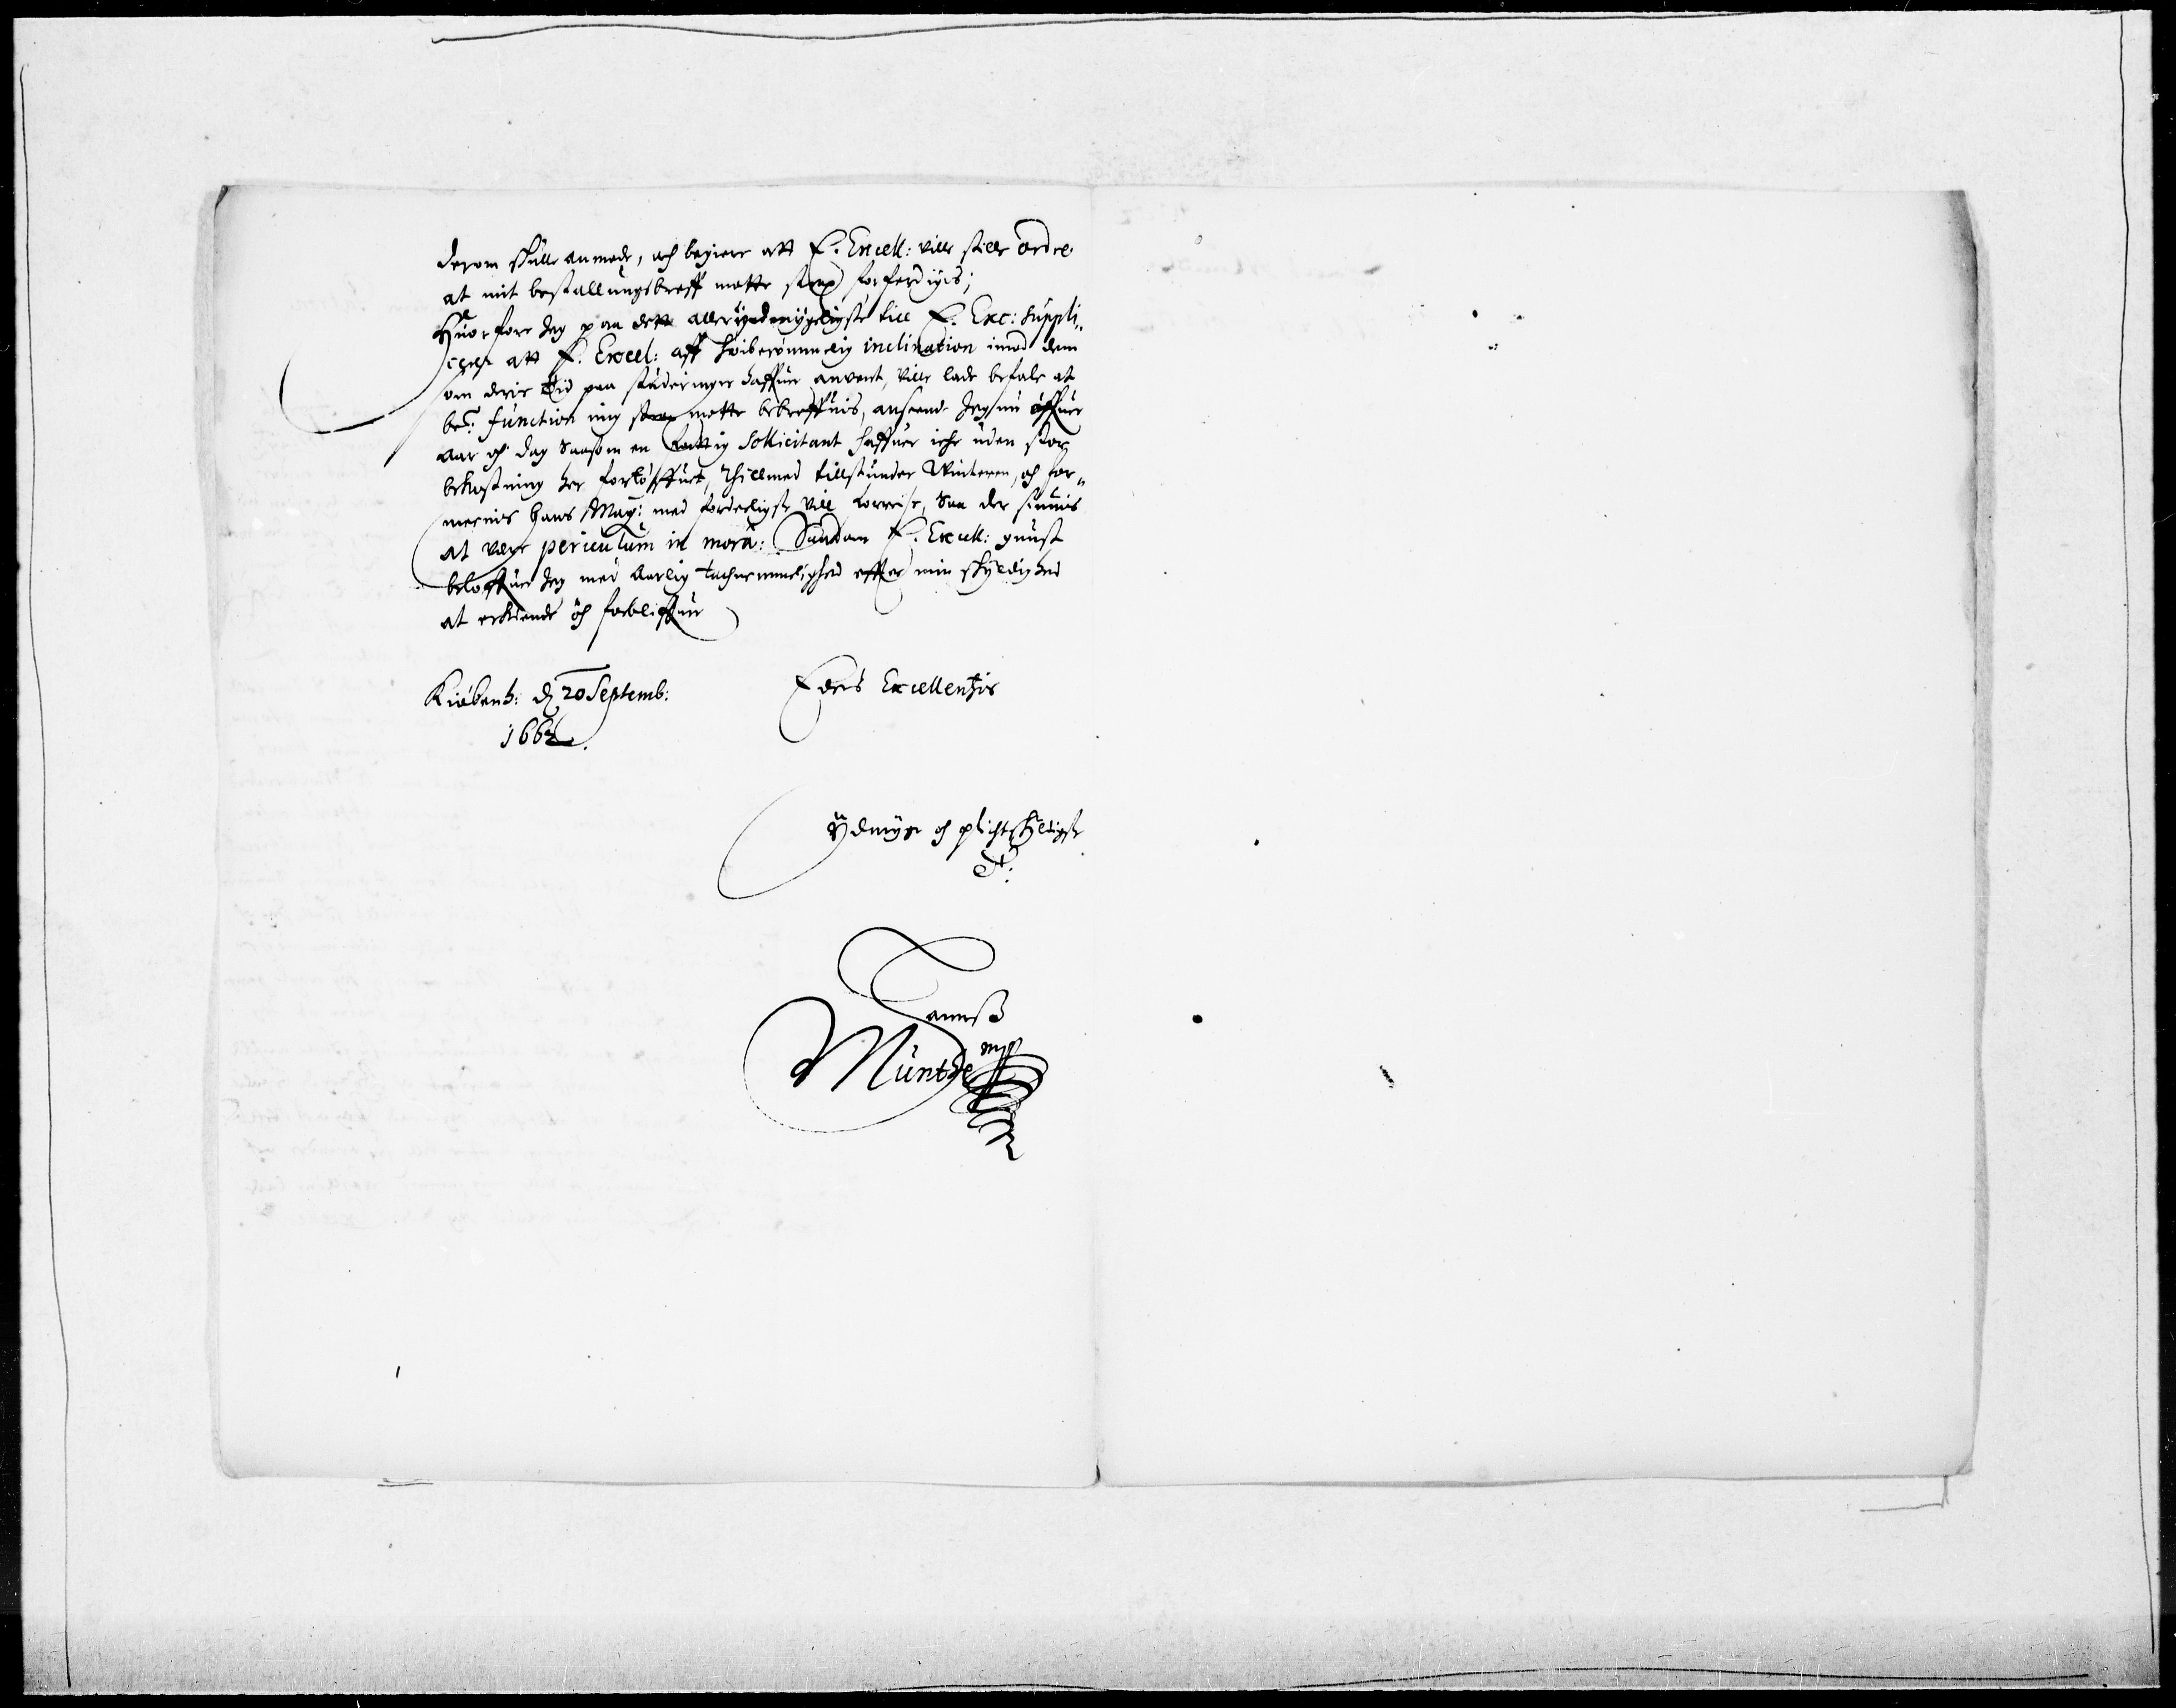 derom skulle anmode, och begiere att E. Excell: ville stille ordre
at mit bestallungsbreff motte strax forferdiges;
Huorfore Jeg paa dett allerydmygeligste till E. Exc: suppli„
cerer att E. Excel: aff høiberømmelig inclination imod dem
som deris tid paa studeringer haffuer anvent, ville lade befale at
bete: function mig strax motte bekreffuis, anseende Jeg nu offuer
aar och dag saasom en fattig sollicitant haffuer icke uden stor
bekostning her fortøffuet, Thillmed tillstunder Winteren, och for„
meenis Hans May: med forderligste vill bortreise, Saa der finnis
at være periculum in mora: Saadan E. Excell: gunst
beloffuer Jeg med kierlig tachnemmelighed effter min skyldighed
at erkiende och forbliffuer
Kiøbenh: d 20 Septemb:
1662.
Eders Excellentzis
Ydmyge och plichtskyldigste
T:
Hannß
Müntzhe mp